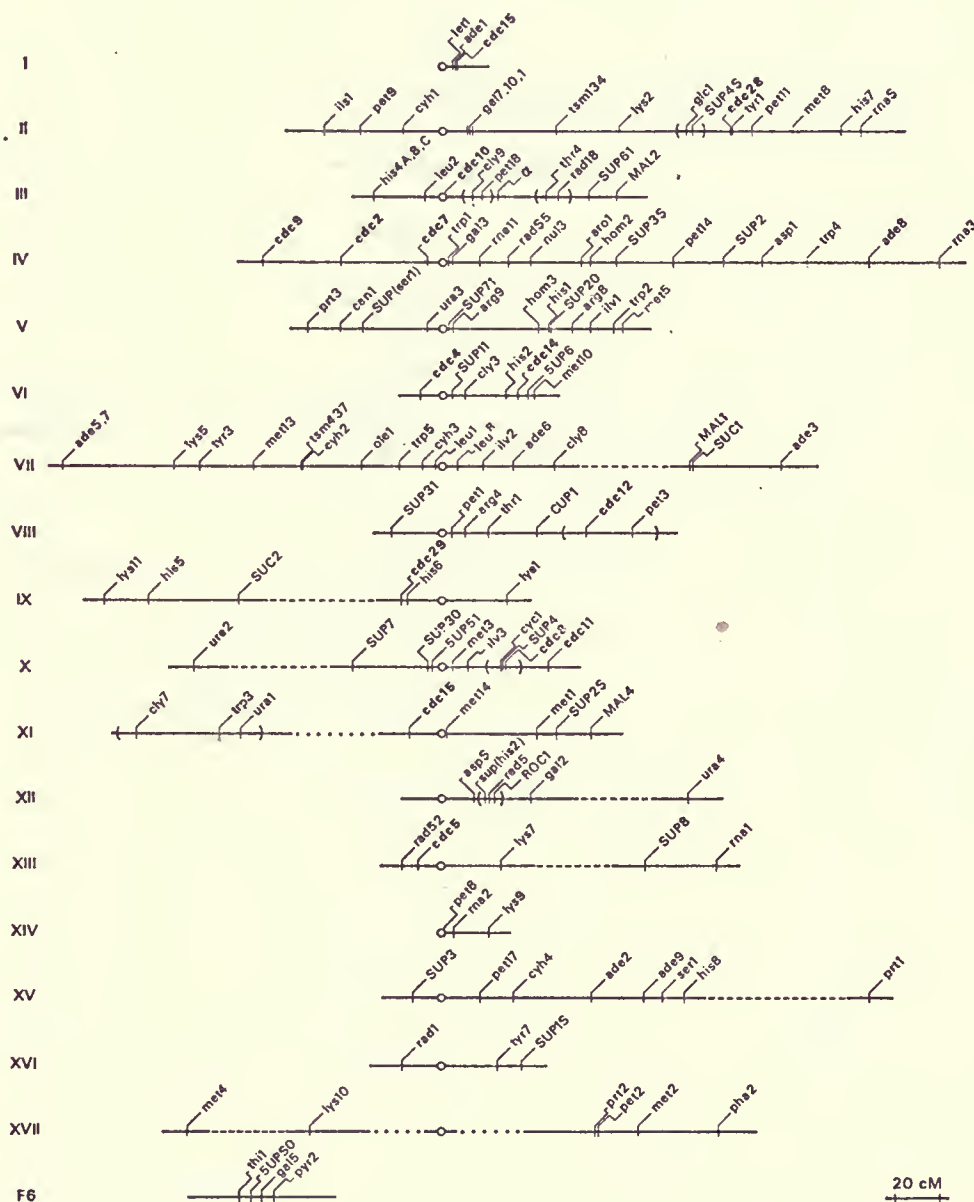 I let1 ade1 cdc15
II ils1 pet9 cyh1 gal7,10,1 tsm134 lys2 glc1 SUP45 cdc28 tyr1 pet11 met8 his7 rna5
III his4A,B,C leu2 cdc10 cly9 pet18 α thr4 rad18 SUP61 MAL2
IV cdc9 cdc2 cdc7 trp1 gal3 rna11 rad55 nul3 aro1 hom2 SUP35 pet14 SUP2 asp1 trp4 ade8 rna3
V prt3 can1 SUP(ser1) ura3 SUP71 arg9 hom3 his1 SUP20 arg8 ilv1 trp2
VI cdc4 SUP11 cly3 his2 cdc14 SUP6 met10
VII ade5,7 lys5 tyr3 met13 tsm437 cyh2 ole1 trp5 cyh3 leu1 ilv2 ade6 cly8 MAL1 SUC1 ade3
VIII SUP31 pet1 arg4 thr1 CUP1 cdc12 pet3
IX lys11 his5 SUC2 cdc29 his6 lys1
X ura2 SUP7 SUP30 SUP51 met3 ilv3 cyc1 SUP4 cdc8 cdc11
XI cly7 trp3 ura1 cdc15 met14 met1 SUP25 MAL4
XII asp5 sup(his2) rad5 ROC1 gal2 ura4
XIII rad52 cdc5 lys7 SUP8 rna1
XIV pet8 rna2 lys9
XV SUP3 pet17 cyh4 ade2 ade9 ser1 his8 prt1
XVI rad1 tyr7 SUP15
XVII met4 lys10 prt2 pet2 met2 pha2
F6 thi1 SUP50 gal5 pyr2
20 cM